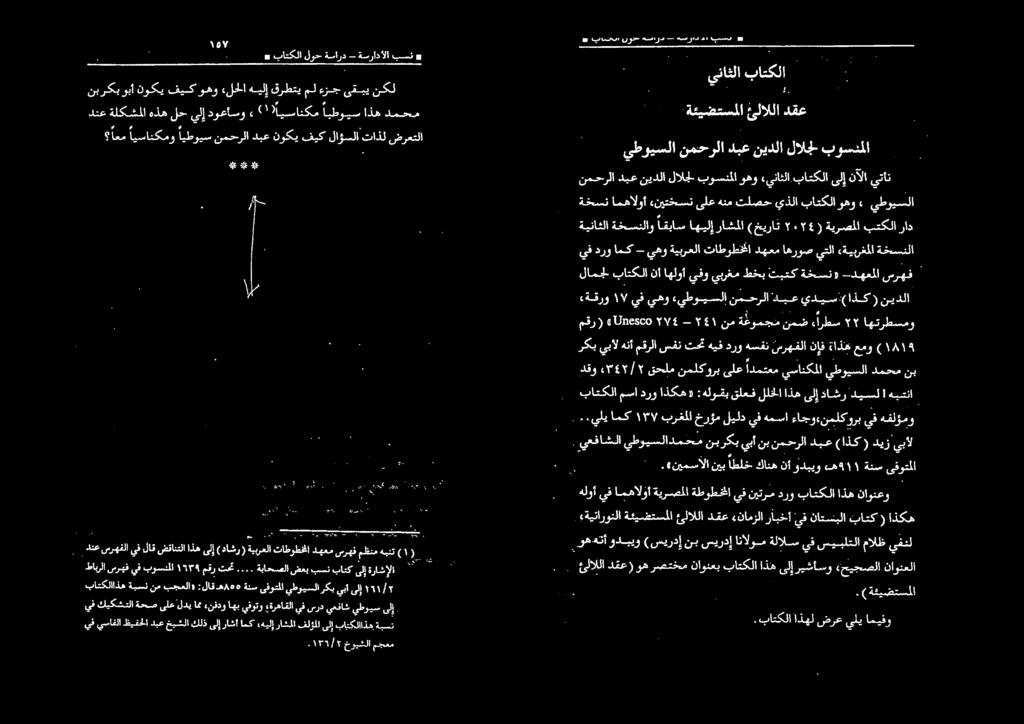 ■ نسب الأدارسة – دراسة حول الكتاب ■
الكتاب الثاني
عقد اللآلئ المستضيئة
المنسوب لجلال الدين عبد الرحمن السيوطي
نأتي الآن إلى الكتاب الثاني، وهو المنسوب لجلال الدين عبد الرحمن
السيوطي ، وهو الكتاب الذي حصلت منه على نسختين، أولاهما نسخة
دار الكتب المصرية (٢٠٢٤ تاريخ) المشار إليها سابقاً والنسخة الثانية
النسخة المغربية، التي صورها معهد المخطوطات العربية وهي – كما ورد في
فهرس المعهد – «نسخة كتبت بخط مغربي وفي أولها أن الكتاب لجمال
الدين (كذا) سيدي عبد الرحمن السيوطي، وهي في ١٧ ورقة،
ومسطرتها ٢٢ سطراً، ضمن مجموعة من ٢٤١ – ٢٧٤ Unesco» (رقم
١٨١٩) ومع هذا، فإن الفهرس نفسه ورد فيه تحت نفس الرقم أنه لأبي بكر
بن محمد السيوطي المكناسي معتمداً على بروكلمن ملحق ٣٤٢/٢، وقد
انتبه السيد رشاد إلى هذا الخلل فعلق بقوله: «هكذا ورد اسم الكتاب
ومؤلفه في بروكلمن، وجاء اسمه في دليل مؤرخ المغرب ١٣٧ كما يلي..
لأبي زيد (كذا) عبد الرحمن بن أبي بكر بن محمد السيوطي الشافعي
المتوفى سنة ٩١١هـ، ويبدو أن هناك خلطاً بين الأسمين».
وعنوان هذا الكتاب ورد مرتين في المخطوطة المصرية أولاهما في أوله
هكذا (كتاب البستان في أخبار الزمان، عقد اللآلئ المستضيئة النورانية،
لنفي ظلام التلبيس في سلالة مولانا إدريس بن إدريس) ويبدو أنه هو
العنوان الصحيح، وسأشير إلى هذا الكتاب بعنوان مختصر هو (عقد اللآلئ
المستضيئة).
وفيما يلي عرض لهذا الكتاب.
١٥٧
■ نسب الأدارسة – دراسة حول الكتاب ■
لكن يبقى جزء لم يتطرق إليه الحل، وهو كيف يكون أبو بكر بن
محمد هذا سيوطياً مكناسياً(١)، وسأعود إلي حل هذه المشكلة عند
التعرض لذات السؤال كيف يكون عبد الرحمن سيوطياً ومكناسياً معاً؟
***
(١) تنبه منظم فهرس معهد المخطوطات العربية (رشاد) إلى هذا التناقض قال في الفهرس عند
الإشارة إلى كتاب نسب بعض الصحابة .... تحت رقم ١٦٣٩ المنسوب في فهرس الرباط
١٦١/٢ إلى أبي بكر السيوطي المتوفى سنة ٨٥٥هـ قال: «العجب من نسبة هذا الكتاب
إلى سيوطي شافعي درس في القاهرة، وتوفي بها ودفن، مما يدل على صحة التشكيك في
نسبة هذا الكتاب إلى المؤلف المشار إليه، كما أشار إلى ذلك الشيخ عبد الحفيظ الفاسي في
معجم الشيوخ ١٣٦/٢.